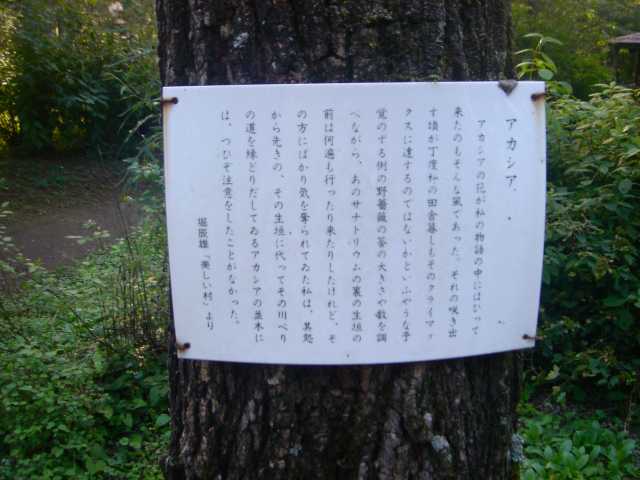 アカシア
アカシアの花が私の物語の中にはひって
来たのもそんな風であった。それの咲き出
す頃が丁度私の田舎暮しもそのクライマッ
クスに達するのではないかといふやうな予
覚のする例の野薔薇の莟の大きさや数を調
べながら、あのサナトリウムの裏の生垣の
前は何遍も行ったり来たりしたけれど、そ
の方にばかり気を奪られてゐた私は、其処
から先きの、その生垣に代ってその川べり
の道を縁どりだしてゐるアカシアの並木に
は、つひぞ注意をしたことがなかった。
堀辰雄「美しい村」より